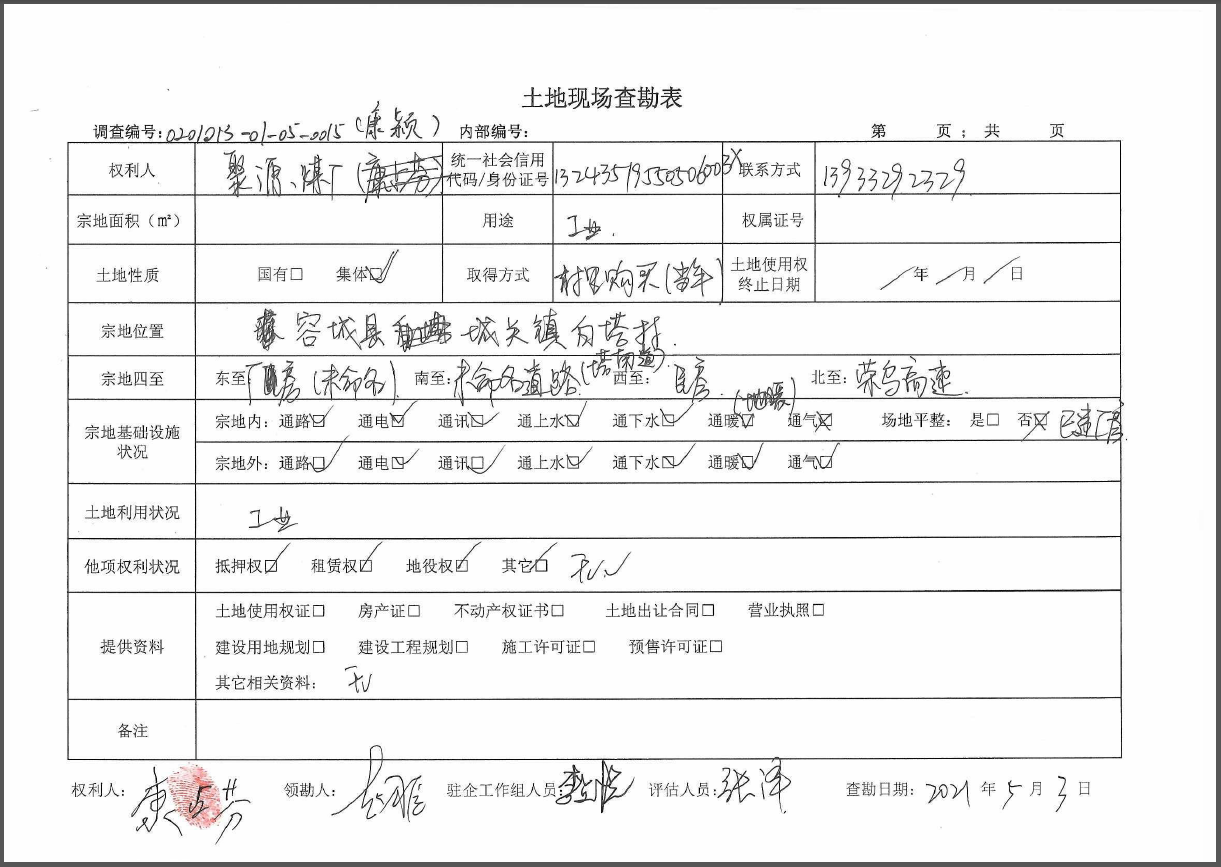 土地现场查勘表
调查编号:0201213-01-05-0015(康颖) 内部编号: 第 页; 共 页
权利人 聚源煤厂 统一社会信用代码/身份证号 13243519550506003X 联系方式 13933292329
宗地面积(m²) 用途 工业. 权属证号
土地性质 国有□ 集体☑ 取得方式 村里购买(当年) 土地使用权终止日期 ／年 ／月 ／日
宗地位置 容城县 城关镇白塔村.
宗地四至 东至 厂房(未命名) 南至: 未命名道路(塔南道). 西至: 民房. 北至: 荣乌高速.
宗地基础设施状况 宗地内: 通路☑ 通电☑ 通讯☑ 通上水☑ 通下水☑ 通暖☑(地暖) 通气☒ 场地平整: 是□ 否☒ 已建厂房.
宗地外: 通路☑ 通电☑ 通讯☑ 通上水☑ 通下水☑ 通暖☑ 通气☑
土地利用状况 工业
他项权利状况 抵押权☑ 租赁权☑ 地役权☑ 其它☑ 无
提供资料 土地使用权证□ 房产证□ 不动产权证书□ 土地出让合同□ 营业执照□
建设用地规划□ 建设工程规划□ 施工许可证□ 预售许可证□
其它相关资料: 无
备注
权利人: 康占芬 领勘人: 驻企工作组人员: 评估人员: 张泽 查勘日期: 2021 年 5 月 3 日